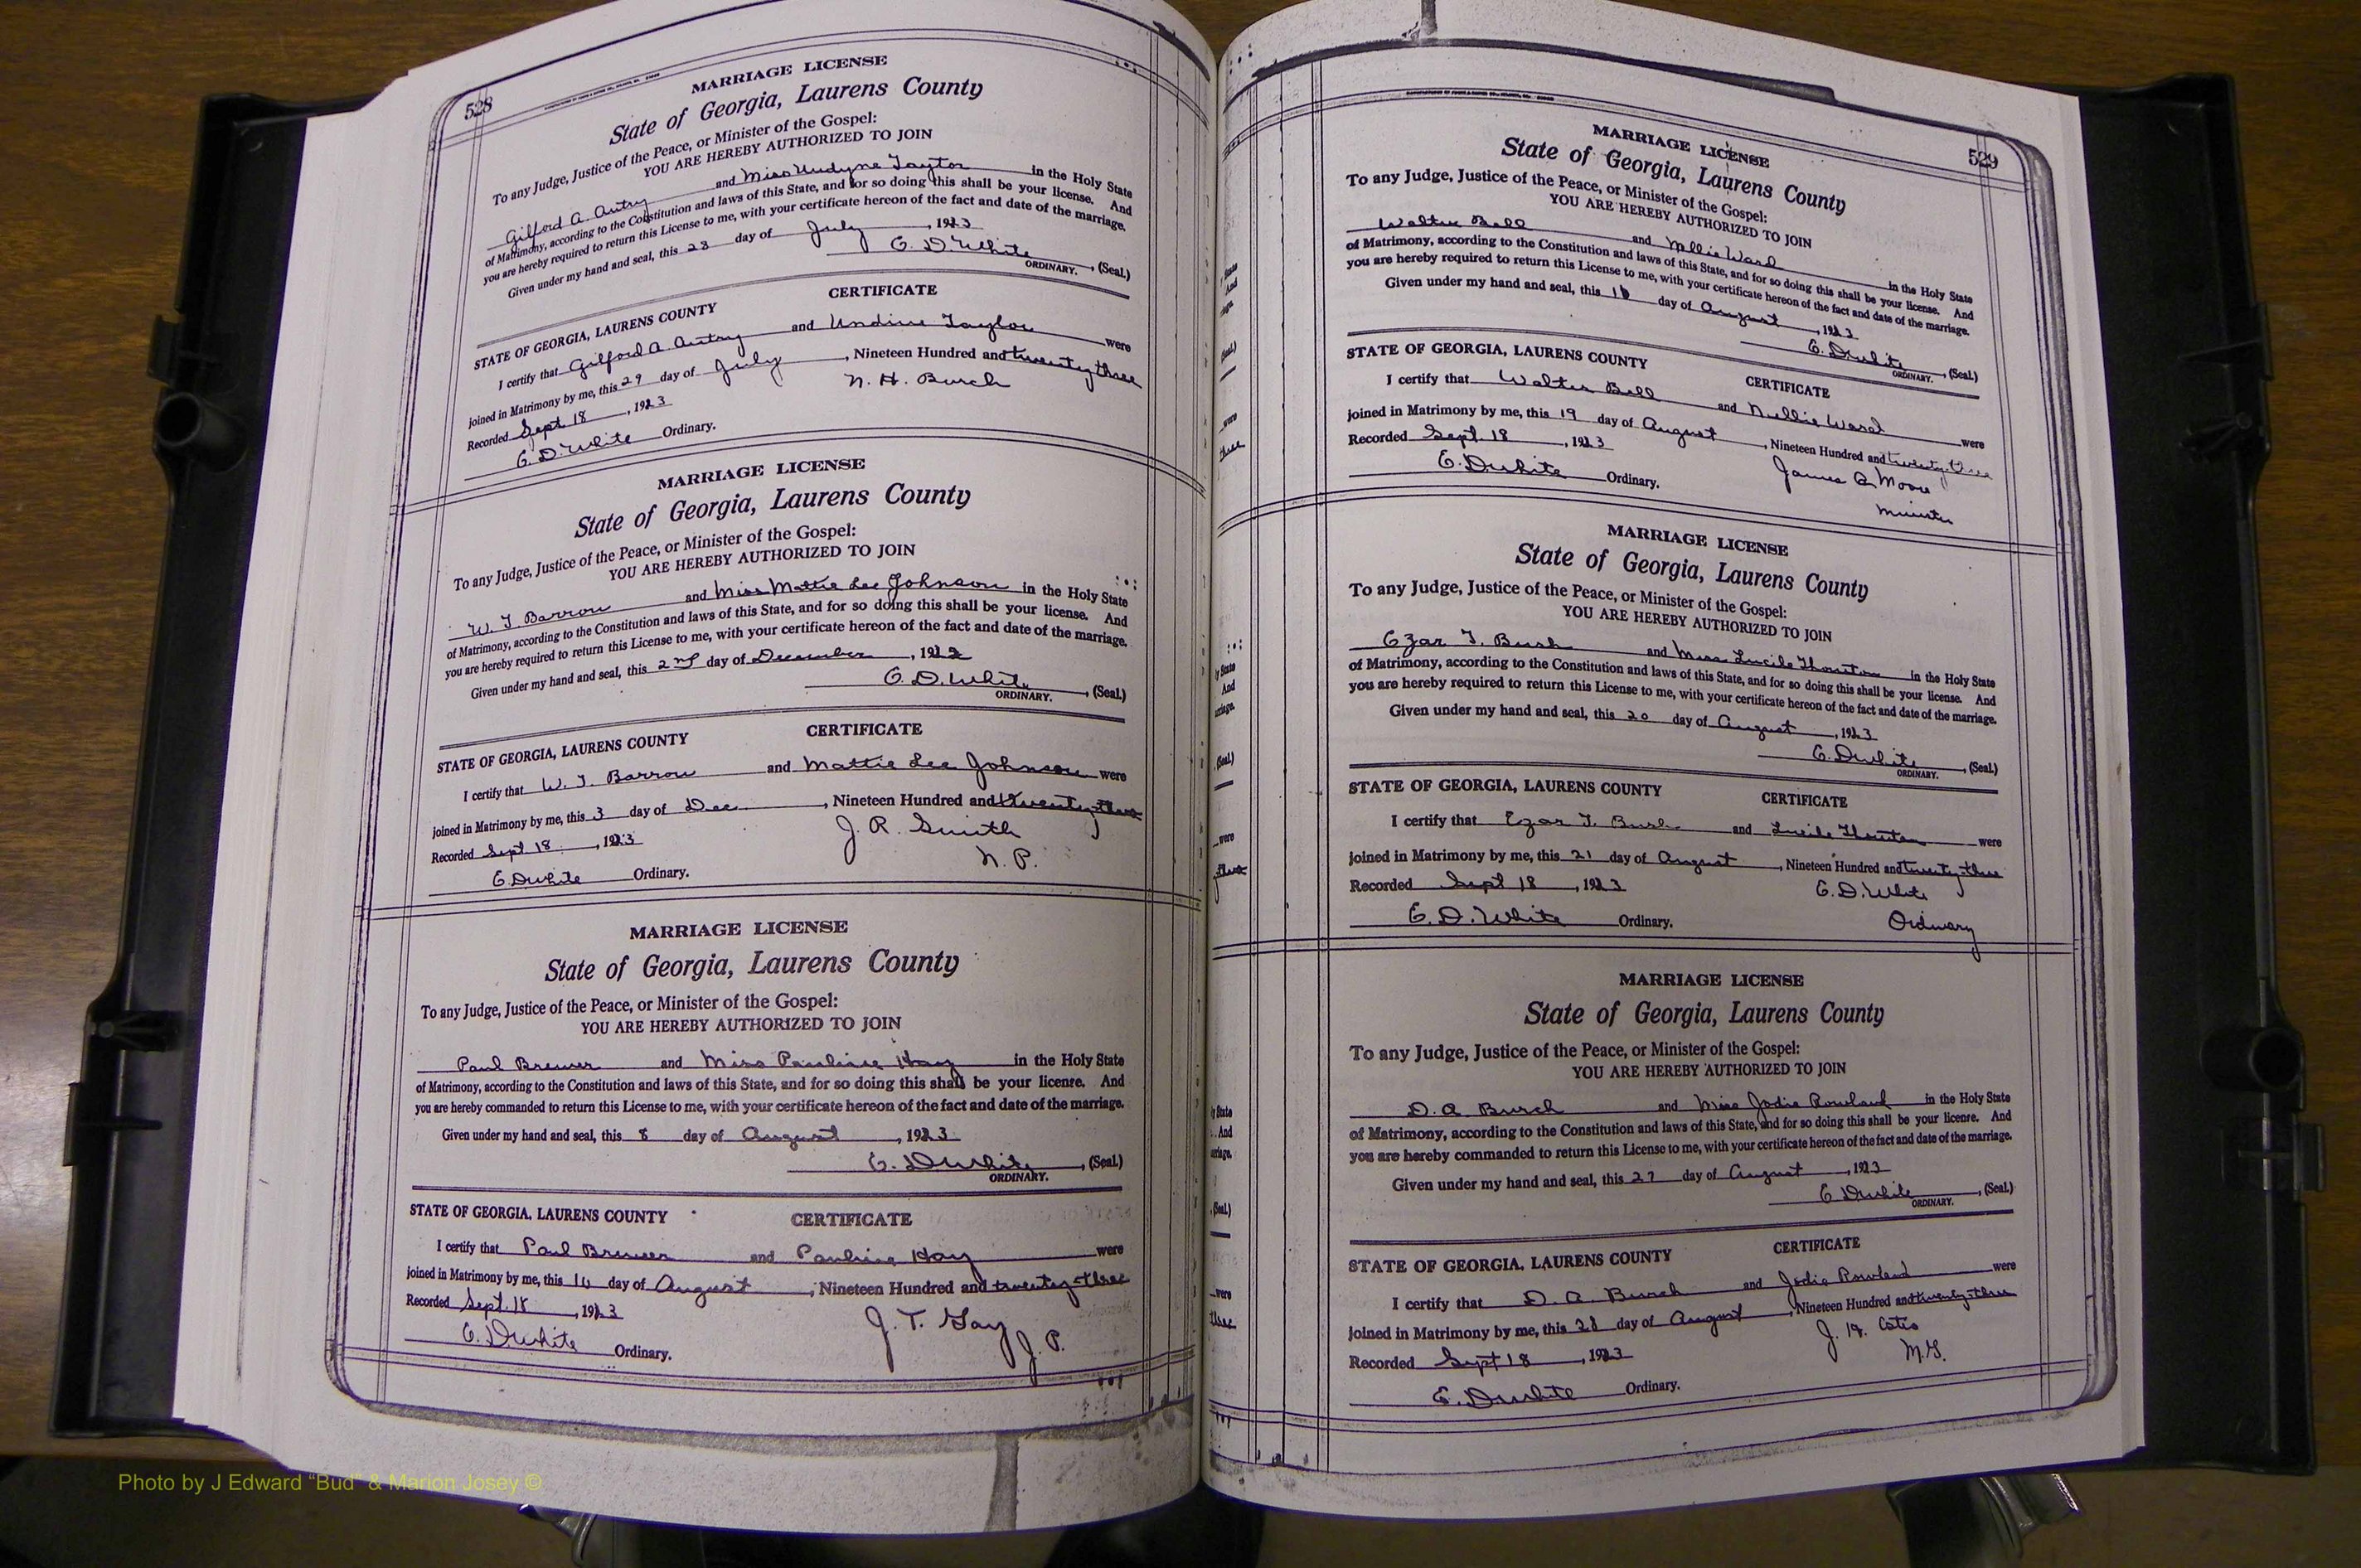 528
MARRIAGE LICENSE
State of Georgia, Laurens County
To any Judge, Justice of the Peace, or Minister of the Gospel:
YOU ARE HEREBY AUTHORIZED TO JOIN
Gilford A. Autry and Miss Undyne Taylor in the Holy State
of Matrimony, according to the Constitution and laws of this State, and for so doing this shall be your license. And
you are hereby required to return this License to me, with your certificate hereon of the fact and date of the marriage.
Given under my hand and seal, this 28 day of July, 1923
E. D. White, (Seal.)
ORDINARY.
CERTIFICATE
STATE OF GEORGIA, LAURENS COUNTY
I certify that Gilford A. Autry and Undine Taylor were
joined in Matrimony by me, this 29 day of July, Nineteen Hundred and twenty three
Recorded Sept 18, 1923 N. H. Burch
E. D. White Ordinary.
MARRIAGE LICENSE
State of Georgia, Laurens County
To any Judge, Justice of the Peace, or Minister of the Gospel:
YOU ARE HEREBY AUTHORIZED TO JOIN
W. T. Barron and Miss Mattie Lee Johnson in the Holy State
of Matrimony, according to the Constitution and laws of this State, and for so doing this shall be your license. And
you are hereby required to return this License to me, with your certificate hereon of the fact and date of the marriage.
Given under my hand and seal, this 2nd day of December, 1922
E. D. White, (Seal.)
ORDINARY.
CERTIFICATE
STATE OF GEORGIA, LAURENS COUNTY
I certify that W. T. Barron and Mattie Lee Johnson were
joined in Matrimony by me, this 3 day of Dec, Nineteen Hundred and twenty-three
Recorded Sept 18, 1923 J. R. Smith
N. P.
E. D White Ordinary.
MARRIAGE LICENSE
State of Georgia, Laurens County
To any Judge, Justice of the Peace, or Minister of the Gospel:
YOU ARE HEREBY AUTHORIZED TO JOIN
Paul Brewer and Miss Pauline Hay in the Holy State
of Matrimony, according to the Constitution and laws of this State, and for so doing this shall be your license. And
you are hereby commanded to return this License to me, with your certificate hereon of the fact and date of the marriage.
Given under my hand and seal, this 8 day of August, 1923
E. D White, (Seal.)
ORDINARY.
STATE OF GEORGIA, LAURENS COUNTY CERTIFICATE
I certify that Paul Brewer and Pauline Hay were
joined in Matrimony by me, this 10 day of August, Nineteen Hundred and twenty-three
Recorded Sept. 18, 1923
J. T. Gay J. P.
E. D White Ordinary.
529
MARRIAGE LICENSE
State of Georgia, Laurens County
To any Judge, Justice of the Peace, or Minister of the Gospel:
YOU ARE HEREBY AUTHORIZED TO JOIN
Walter Bell and Ward in the Holy State
of Matrimony, according to the Constitution and laws of this State, and for so doing this shall be your license. And
you are hereby required to return this License to me, with your certificate hereon of the fact and date of the marriage.
Given under my hand and seal, this day of August, 1923
E. D White, (Seal.)
ORDINARY.
STATE OF GEORGIA, LAURENS COUNTY CERTIFICATE
I certify that Walter Bell and Nellie Ward were
joined in Matrimony by me, this 19 day of August, Nineteen Hundred and twenty three
Recorded Sept. 18, 1923 James A Moore
E. D White Ordinary. Minister
MARRIAGE LICENSE
State of Georgia, Laurens County
To any Judge, Justice of the Peace, or Minister of the Gospel:
YOU ARE HEREBY AUTHORIZED TO JOIN
Ezar T. Bush and Miss Lucile in the Holy State
of Matrimony, according to the Constitution and laws of this State, and for so doing this shall be your license. And
you are hereby required to return this License to me, with your certificate hereon of the fact and date of the marriage.
Given under my hand and seal, this 20 day of August, 1923
E. D White, (Seal.)
ORDINARY.
STATE OF GEORGIA, LAURENS COUNTY CERTIFICATE
I certify that Ezar T. Bush and Lucile were
joined in Matrimony by me, this 21 day of August, Nineteen Hundred and twenty-three
Recorded Sept 18, 1923 E. D. White
E. D. White Ordinary. Ordinary
MARRIAGE LICENSE
State of Georgia, Laurens County
To any Judge, Justice of the Peace, or Minister of the Gospel:
YOU ARE HEREBY AUTHORIZED TO JOIN
D. A Burch and Miss Jodie Rowland in the Holy State
of Matrimony, according to the Constitution and laws of this State, and for so doing this shall be your license. And
you are hereby commanded to return this License to me, with your certificate hereon of the fact and date of the marriage.
Given under my hand and seal, this 27 day of August, 1923
E D White, (Seal.)
ORDINARY.
STATE OF GEORGIA, LAURENS COUNTY CERTIFICATE
I certify that D. A. Burch and Jodie Rowland were
joined in Matrimony by me, this 28 day of August, Nineteen Hundred and twenty-three
Recorded Sept 18, 1923 M.G.
E. D White Ordinary.
Photo by J Edward “Bud” & Marion Josey ©